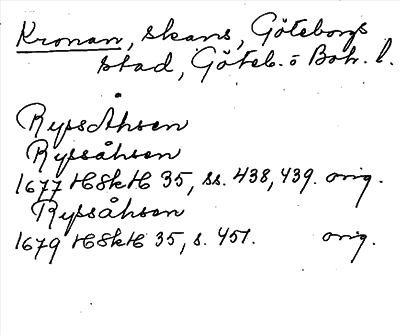 Kronan, skans, Göteborgs
stad, Göteb. o Boh. l.
RyssÅhsen
Ryssåhsen
1677 HSkH 35, ss. 438, 439. orig.
Ryssåhsen
1679 HSkH 35, s. 451. orig.